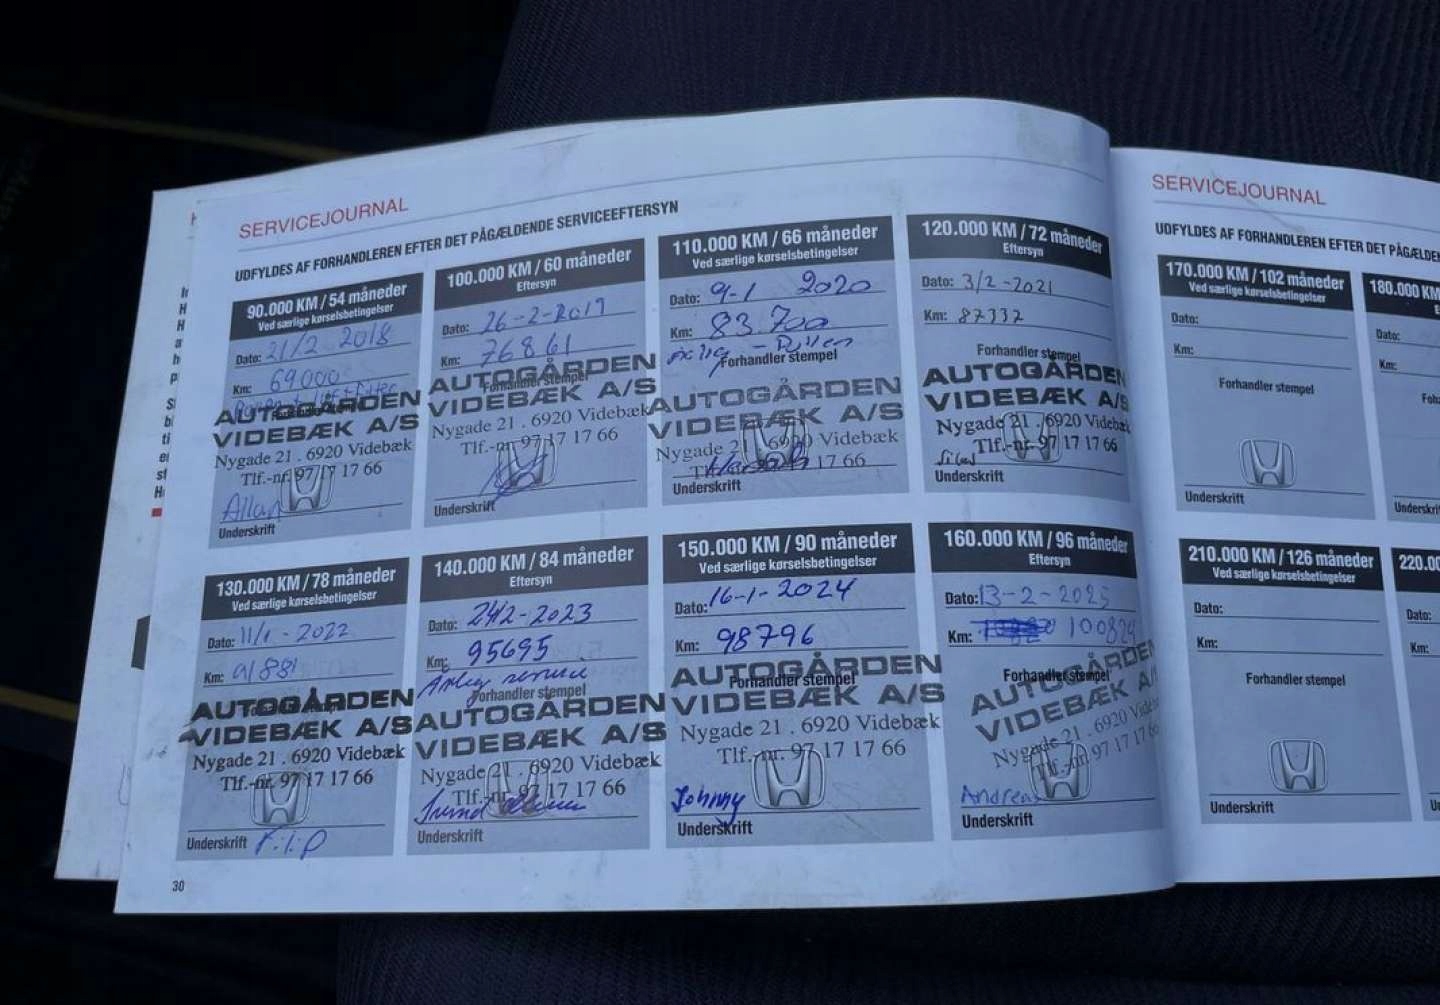 SERVICEJOURNAL
UDFYLDES AF FORHANDLEREN EFTER DET PÅGÆLDENDE SERVICEEFTERSYN
90.000 KM / 54 måneder
Ved særlige kørselsbetingelser
Dato: 21/2 2018
Km: 69000
AUTOGÅRDEN
VIDEBÆK A/S
Nygade 21 . 6920 Videbæk
Tlf.-nr. 97 17 17 66
Allan
Underskrift
100.000 KM / 60 måneder
Eftersyn
Dato: 26-2-2019
Km: 76861
Forhandler stempel
AUTOGÅRDEN
VIDEBÆK A/S
Nygade 21 . 6920 Videbæk
Tlf.-nr. 97 17 17 66
Underskrift
110.000 KM / 66 måneder
Ved særlige kørselsbetingelser
Dato: 9-1 2020
Km: 83.700
Forhandler stempel
AUTOGÅRDEN
VIDEBÆK A/S
Nygade 21 . 6920 Videbæk
Tlf.-nr. 97 17 17 66
Underskrift
120.000 KM / 72 måneder
Eftersyn
Dato: 3/2-2021
Km: 87337
Forhandler stempel
AUTOGÅRDEN
VIDEBÆK A/S
Nygade 21 . 6920 Videbæk
Tlf.-nr. 97 17 17 66
Underskrift
130.000 KM / 78 måneder
Ved særlige kørselsbetingelser
Dato: 11/1-2022
Km: 91881
AUTOGÅRDEN
VIDEBÆK A/S
Nygade 21 . 6920 Videbæk
Tlf.-nr. 97 17 17 66
Underskrift
140.000 KM / 84 måneder
Eftersyn
Dato: 24/2-2023
Km: 95695
Forhandler stempel
AUTOGÅRDEN
VIDEBÆK A/S
Nygade 21 . 6920 Videbæk
Tlf.-nr. 97 17 17 66
Underskrift
150.000 KM / 90 måneder
Ved særlige kørselsbetingelser
Dato: 16-1-2024
Km: 98796
Forhandler stempel
AUTOGÅRDEN
VIDEBÆK A/S
Nygade 21 . 6920 Videbæk
Tlf.-nr. 97 17 17 66
Johnny
Underskrift
160.000 KM / 96 måneder
Eftersyn
Dato: 13-2-2025
Km: 100829
Forhandler stempel
AUTOGÅRDEN
VIDEBÆK A/S
Nygade 21 . 6920 Videbæk
Tlf.-nr. 97 17 17 66
Andreas
Underskrift
30
SERVICEJOURNAL
UDFYLDES AF FORHANDLEREN EFTER DET
170.000 KM / 102 måneder
Ved særlige kørselsbetingelser
Dato:
Km:
Forhandler stempel
Underskrift
180.000 KM
Dato:
Km:
210.000 KM / 126 måneder
Ved særlige kørselsbetingelser
Dato:
Km:
Forhandler stempel
Underskrift
Dato:
Km: